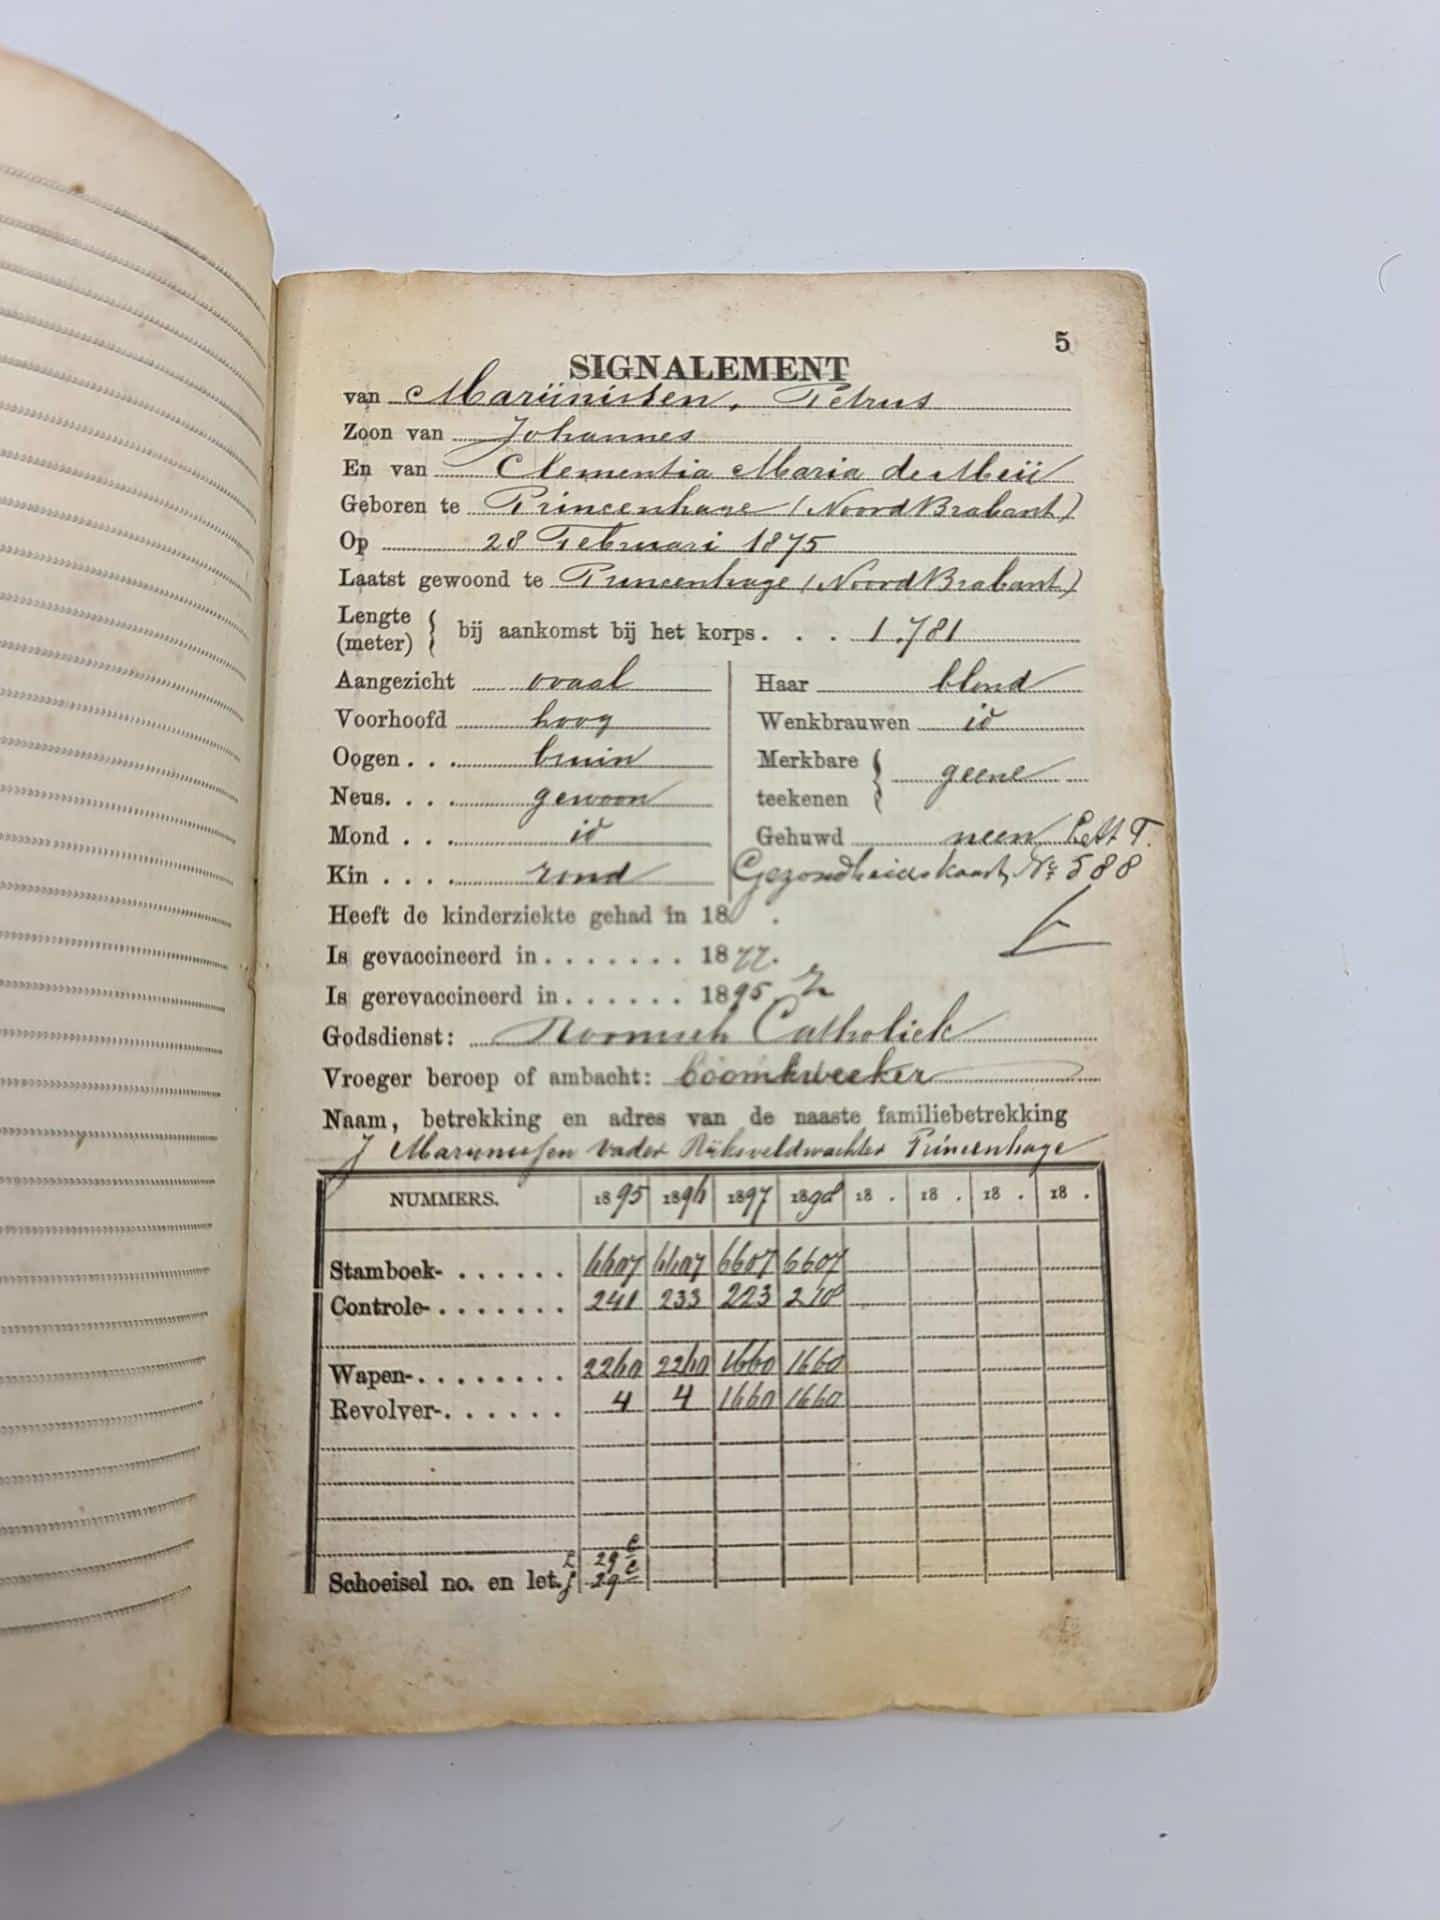 5
SIGNALEMENT
van Marijnissen, Petrus
Zoon van Johannes
En van Clementia Maria de Meij
Geboren te Princenhage (Noord Brabant)
Op 28 Februari 1875
Laatst gewoond te Princenhage (Noord Brabant)
Lengte (meter) bij aankomst bij het korps. . . 1.781
Aangezicht ovaal Haar blond
Voorhoofd hoog Wenkbrauwen id
Oogen . . . bruin Merkbare teekenen geene
Neus. . . . gewoon
Mond . . . id Gehuwd neen Lett T.
Kin . . . . rond Gezondheidskaart No 588
Heeft de kinderziekte gehad in 18 .
Is gevaccineerd in . . . . . . . 1877.
Is gerevaccineerd in . . . . . . 1895
Godsdienst: Roomsch Catholiek
Vroeger beroep of ambacht: boomkweeker
Naam, betrekking en adres van de naaste familiebetrekking
J Marijnissen vader Rijksveldwachter Princenhage
NUMMERS. 1895 1896 1897 1898 18 . 18 . 18 . 18 .
Stamboek- . . . . . . 6607 6607 6607 6607
Controle- . . . . . . . 241 233 223 218
Wapen- . . . . . . . . 2260 2260 1660 1660
Revolver- . . . . . . 4 4 1660 1660
29 c
Schoeisel no. en let. 29 c